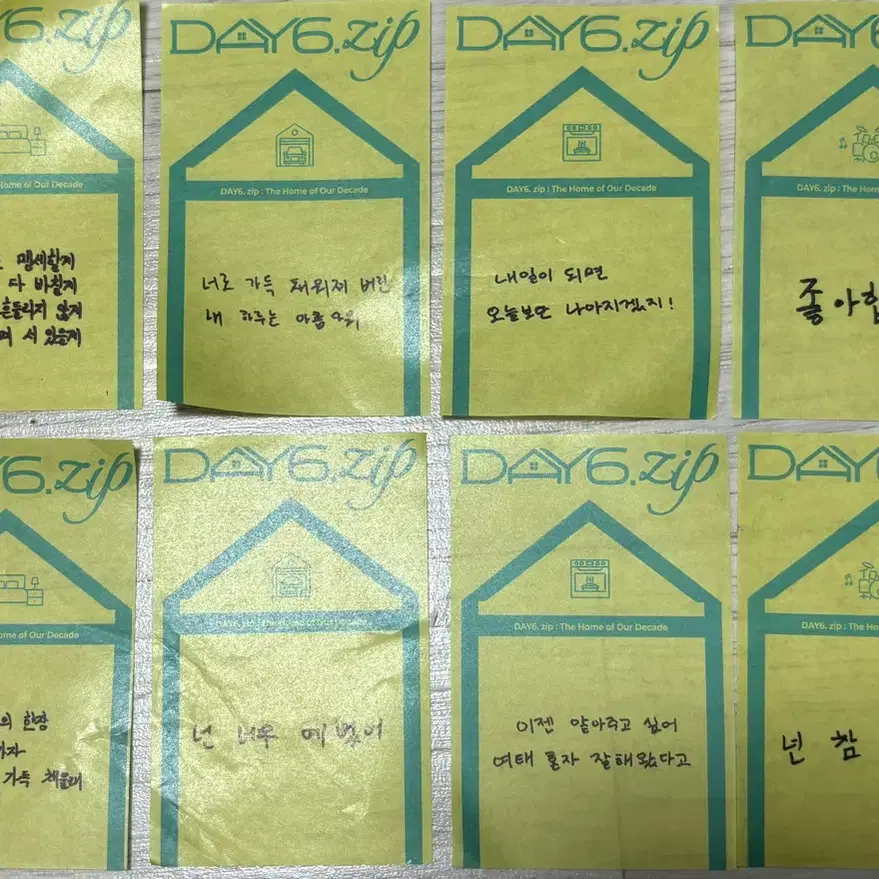 Y6.zip
DAY6.zip
DAY6.zip
DAY6
Home of Our Decade
DAY6. zip : The Home of Our Decade
DAY6. zip : The Home of Our Decade
DAY6. zip : The Hom
맹세할게
다 바칠게
흔들리지 않게
서 있을게
너로 가득 채워져 버린
내 하루는 아름다워
내일이 되면
오늘보단 나아지겠지!
좋아합
Y6.zip
DAY6.zip
DAY6.zip
DAY6
ome of Our Decade
DAY6. zip : The Home of Our Decade
DAY6. zip : The Home of Our Decade
DAY6. zip : The Ho
의 한장
가득 채울래
넌 너무 예뻤어
이젠 안아주고 싶어
여태 혼자 잘해왔다고
넌 참